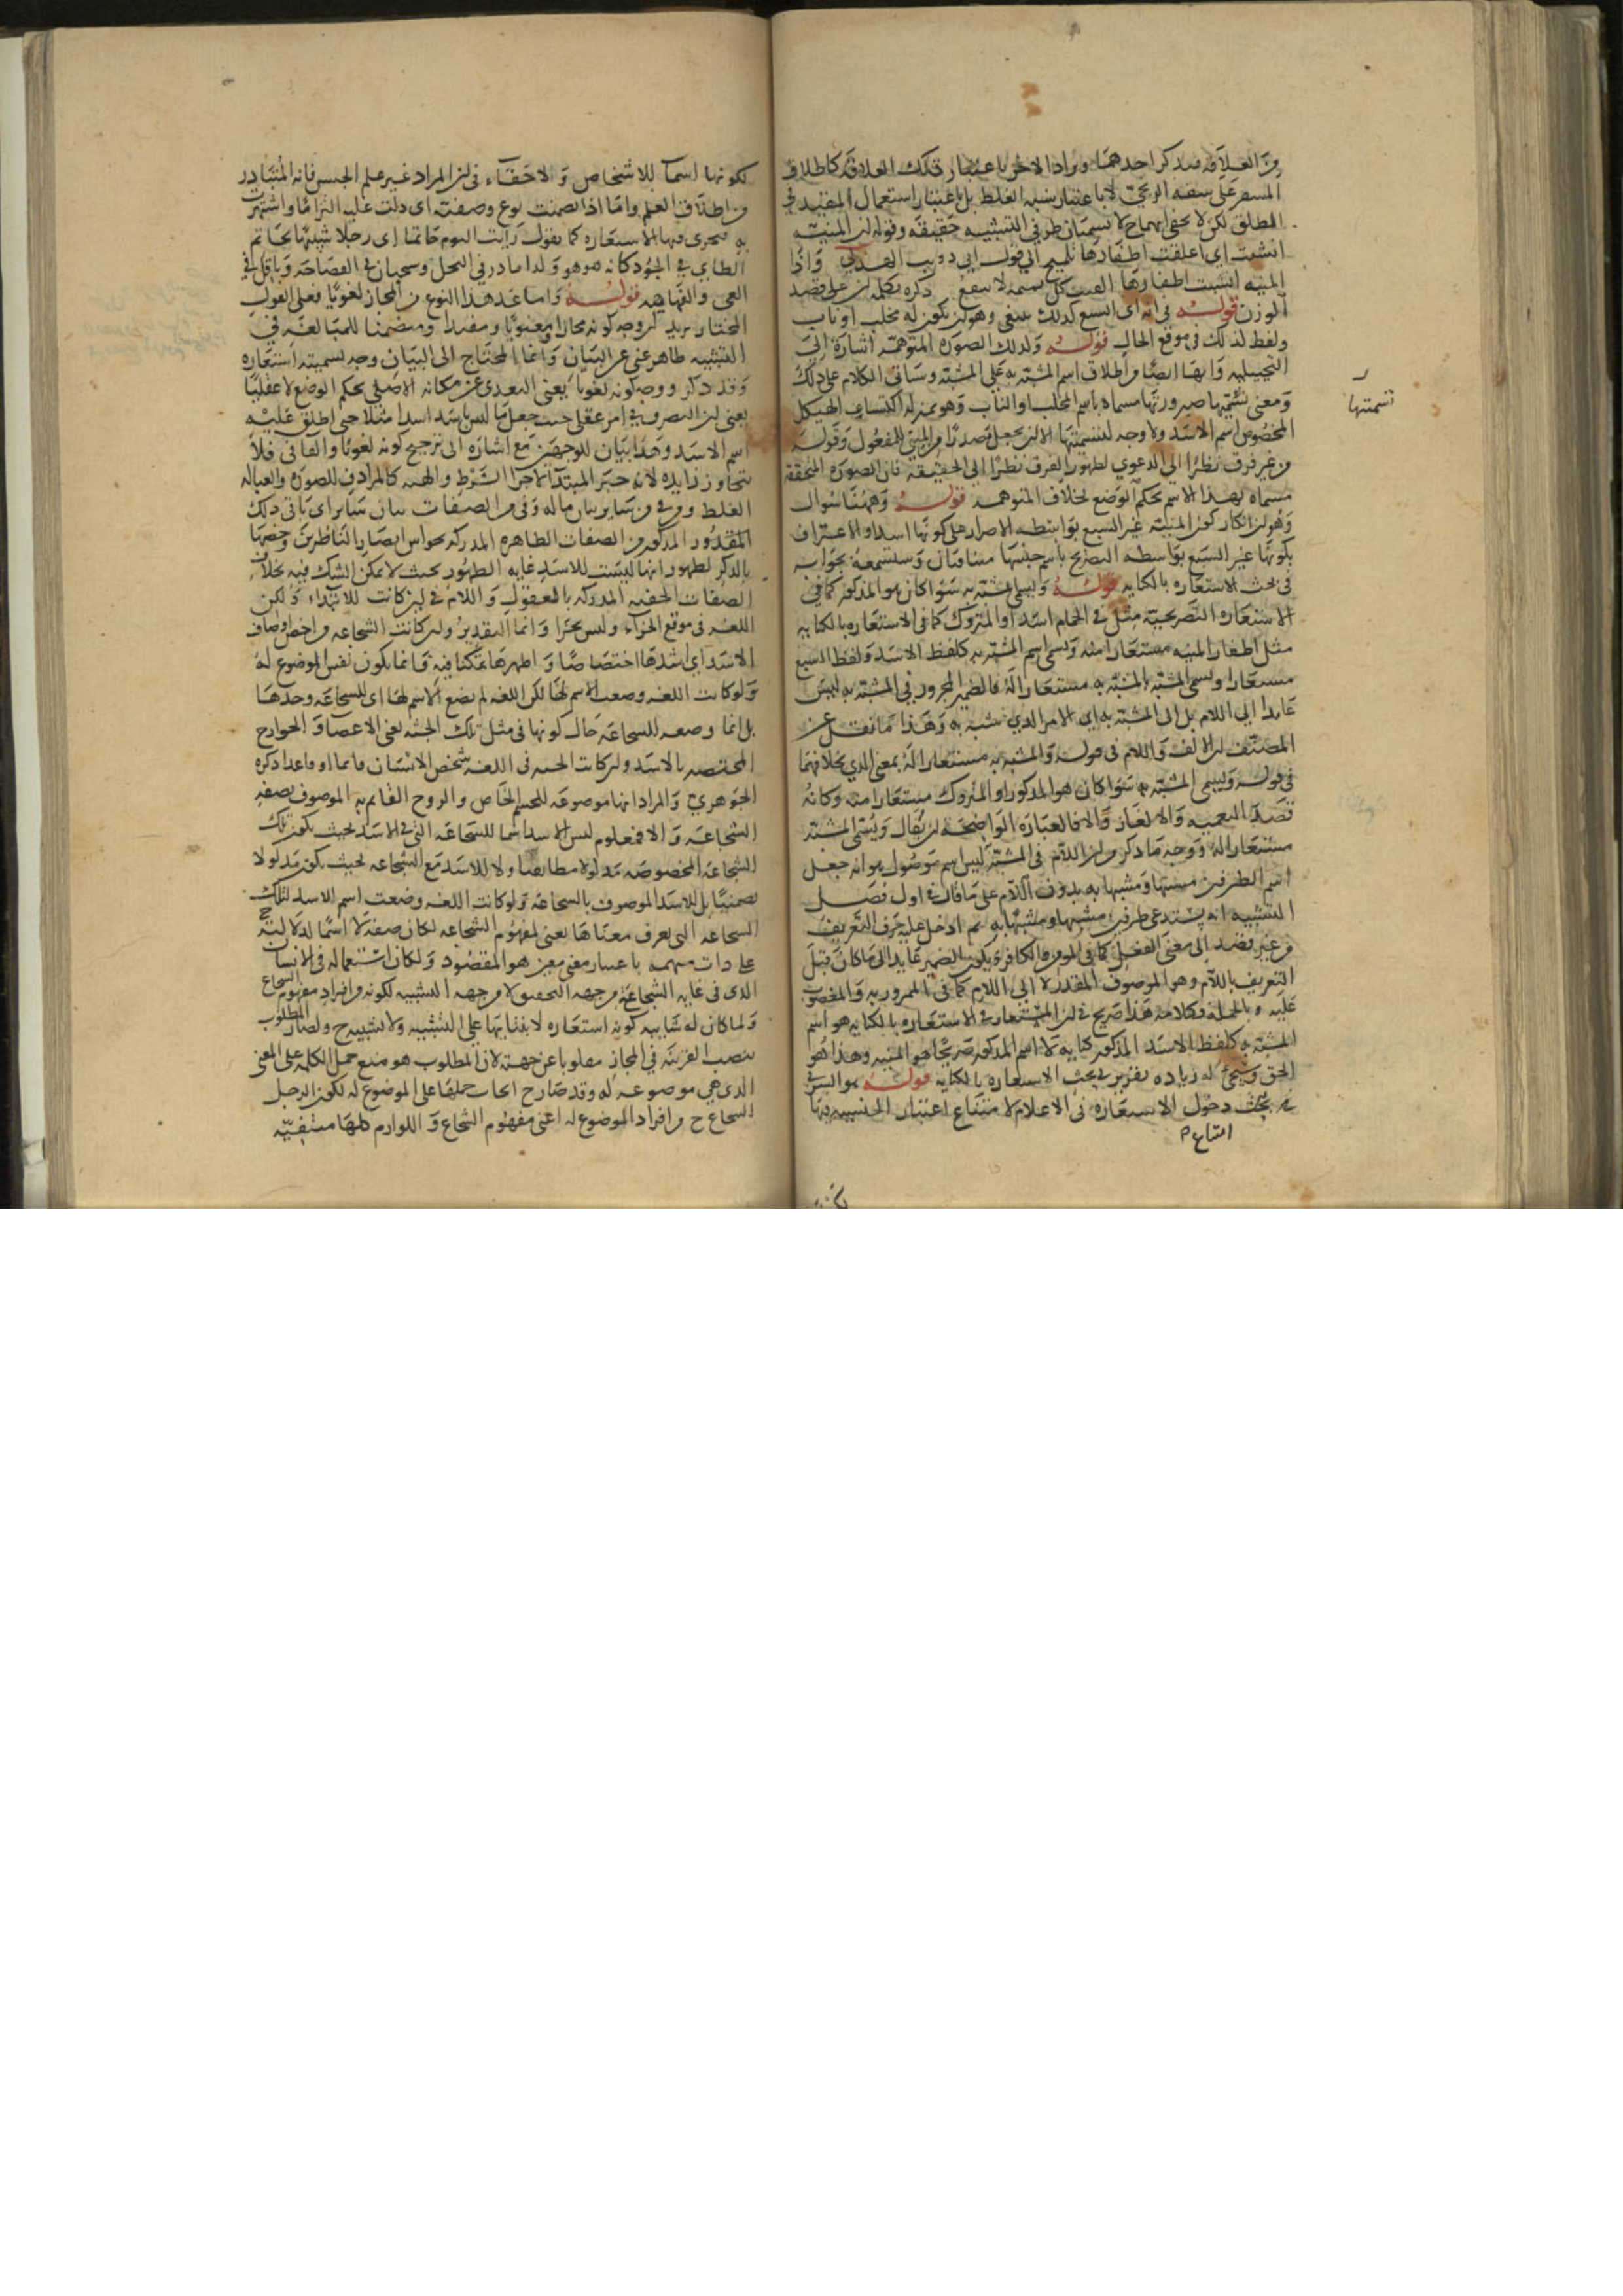 من العلاقة فيذكر احدهما ويراد الاخر باعتبار تلك العلاقة كاطلاق
المشفر على شفة الزنجي لا باعتبار شبه الغلظ بل باعتبار استعمال المقيد في
المطلق لكن لا يخفى انهما ح لا يسميان طرفي التشبيه حقيقة وقوله لن المنية
انشبت اي اعلقت اظفارها تلميح الى قول ابي ذويب الهذلي واذا
المنية انشبت اظفارها الفيت كل تميمة لا تنفع ذكره بكماله على قصد
الوزن قوله في انه اي السبع كذلك ينبغي وهو لن يكون له مخلب او ناب
ولفظ لذلك في موقع الحال قوله ولذلك الصورة المتوهمة اشارة الى
التخييلية وانها ايضا من اطلاق اسم المشبه به على المشبه وسياتي الكلام على ذلك
ومعنى تسميتها صيرورتها مسماة باسم المخلب او الناب وهو بمنزلة اكتساب الهيكل
المخصوص اسم الاسد ولا وجه لتسميتها الا لن يجعل مصدرا من المبني للمفعول وقوله
من غير فرق نظرا الى الدعوي لظهور الفرق نظرا الى الحقيقة فان الصورة المحققة
مسماة بهذا الاسم بحكم الوضع بخلاف المتوهمة قوله وههنا سوال
وهو لن انكار كون المنية غير السبع بواسطة الاصرار على كونها اسدا والاعتراف
بكونها غير السبع بواسطة التصريح باسم جنسها متنافيان وستسمعه بجوابه
في بحث الاستعارة بالكناية قوله ويسمى المشبه به سوا كان هو المذكور كما في
الاستعارة التصريحية مثل في الحمام اسد او المتروك كما في الاستعارة بالكناية
مثل اظفار المنية مستعارا منه ويسمى اسم المشبه به كلفظ الاسد ولفظ السبع
مستعارا ويسمى المشبه بالمشبه به مستعارا له فالضمير المجرور في المشبه به ليس
عايدا الى اللام بل الى المشبه به اي الامر الذي شبه به وهذا ما نقل عن
المصنف لن الالف واللام في قوله والمشبه به مستعارا له بمعنى الذي بخلافهما
في قوله ويسمى المشبه به سوا كان هو المذكور او المتروك مستعارا منه وكانه
قصد التعمية والالغاز والا فالعبارة الواضحة لن يقال ويسمى المشبه
مستعارا له ووجه ما ذكر من لن اللام في المشبه ليس اسم موصول هو انه جعل
اسم الطرفين مشبها ومشبها به بدون اللام على ما قال في اول فصل
التشبيه انه يستدعي طرفين مشبها ومشبها به ثم ادخل عليه حرف التعريف
من غير قصد الى معنى الفعل كما في المومن والكافر ويكون الضمير عايدا الى ما كان قبل
التعريف باللام وهو الموصوف المقدر لا الى اللام كما في الممرور به والمغضوب
عليه وبالجملة فكلامه هذا صريح في لن المستعار في الاستعارة بالكناية هو اسم
المشبه به كلفظ الاسد المذكور كناية لا اسم المذكور صريحا هو المنية وهذا هو
الحق وسيجئ له زيادة تقرير في بحث الاستعارة بالكناية قوله هو السر في
بحث دخول الاستعارة في الاعلام لامتناع اعتبار الجنسية فيها
امتناع
تسميتها
لكونها اسما للاشخاص ولا خفاء في لن المراد غير علم الجنس فانه المتبادر
من اطلاق العلم واما اذا تضمنت نوع وصفية اي دلت عليه التزاما واشتهرت
به فتجرى فيها الاستعارة كما يقول رايت اليوم حاتما اي رجلا شبيها بحاتم
الطايي في الجود كانه هو هو ولذا مادر في البخل وسحبان في الفصاحة وباقل في
العي والفهاهة قوله وانما عد هذا النوع من المجاز لغويا فعلى القول
المختار يريد لن وجه كونه مجازا ومعنويا ومفيدا ومتضمنا للمبالغة في
التشبيه ظاهر غني عن البيان وانما المحتاج الى البيان وجه تسميته استعارة
وقد ذكر ووجه كونه لغويا يعني التعدي عن مكانه الاصلي بحكم الوضع لا عقليا
يعني لن التصرف في امر عقلي حيث جعل ما ليس باسد اسدا مثلا حتى اطلق عليه
اسم الاسد وهذا بيان للوجهين مع اشارة الى ترجيح كونه لغويا والفا في فلا
يتجاوز زايدة لانه خبر المبتدا لا جزا الشرط والهيئة كالمرادف للصورة والعبالة
الغلظ ومن في من ساير بيان ماله وفي من الصفات بيان ساير اي باقي ذلك
المقدور المذكور من الصفات الظاهرة المدركة بحواس ابصار الناظرين وخصها
بالذكر لظهور انها ليست للاسد غاية الظهور بحيث لا يمكن الشك فيه بخلاف
الصفات الخفية المدركة بالعقول واللام في لن كانت للابتداء ولكن
اللغة في موقع الجزاء وليس بجزا وانما التقدير ولن كانت الشجاعة من اخص اوصاف
الاسد اي اشدها اختصاصا واظهرها تمكنا فيه فانما يكون نفس الموضوع له
ولو كانت اللغة وضعت الاسم لها لكن اللغة لم تضع الاسم لها اي للشجاعة وحدها
بل انما وضعه للشجاعة حال كونها في مثل تلك الجثة يعني الاعضا والجوارح
المختصة بالاسد ولن كانت الجثة في اللغة شخص الانسان قايما او قاعدا ذكره
الجوهري والمراد انها موضوعة للجسم الخاص والروح القايم به الموصوف بصفة
الشجاعة والا فمعلوم لن ليس الاسد اسما للشجاعة التي في الاسد بحيث يكون تلك
الشجاعة المخصوصة مدلولا مطابقيا ولا للاسد مع الشجاعة بحيث يكون مدلولا
تضمنيا بل للاسد الموصوف بالشجاعة ولو كانت اللغة وضعت اسم الاسد لتلك
الشجاعة التي يعرف معناها يعني لمفهوم الشجاعة لكان صفة لا اسما لدلالته ح
على ذات مبهمة باعتبار معنى معين هو المقصود ولكان استعماله في الانسان
الذي في غاية الشجاعة من جهة التحقيق لا من جهة التشبيه لكونه من افراد مفهوم الشجاع
ولما كان له شايبة كونه استعارة لابتنايها على التشبيه ولا تشبيه ح ولصار المطلوب
بنصب القرينة في المجاز مقلوبا عن جهته لان المطلوب هو منع حمل الكلمة على المعنى
الذي هي موضوعة له وقد صار ح ايجاب حملها على الموضوع له لكون الرجل
الشجاع ح من افراد الموضوع له اعني مفهوم الشجاع واللوازم كلها منتفية